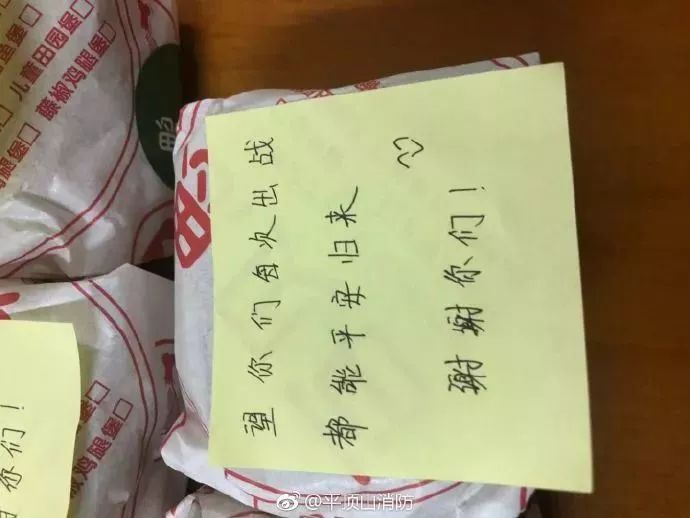 望你们每次出战
都能平安归来
谢谢你们！
你们！
儿童田园堡
藤椒鸡腿堡
鸡腿堡
@平顶山消防